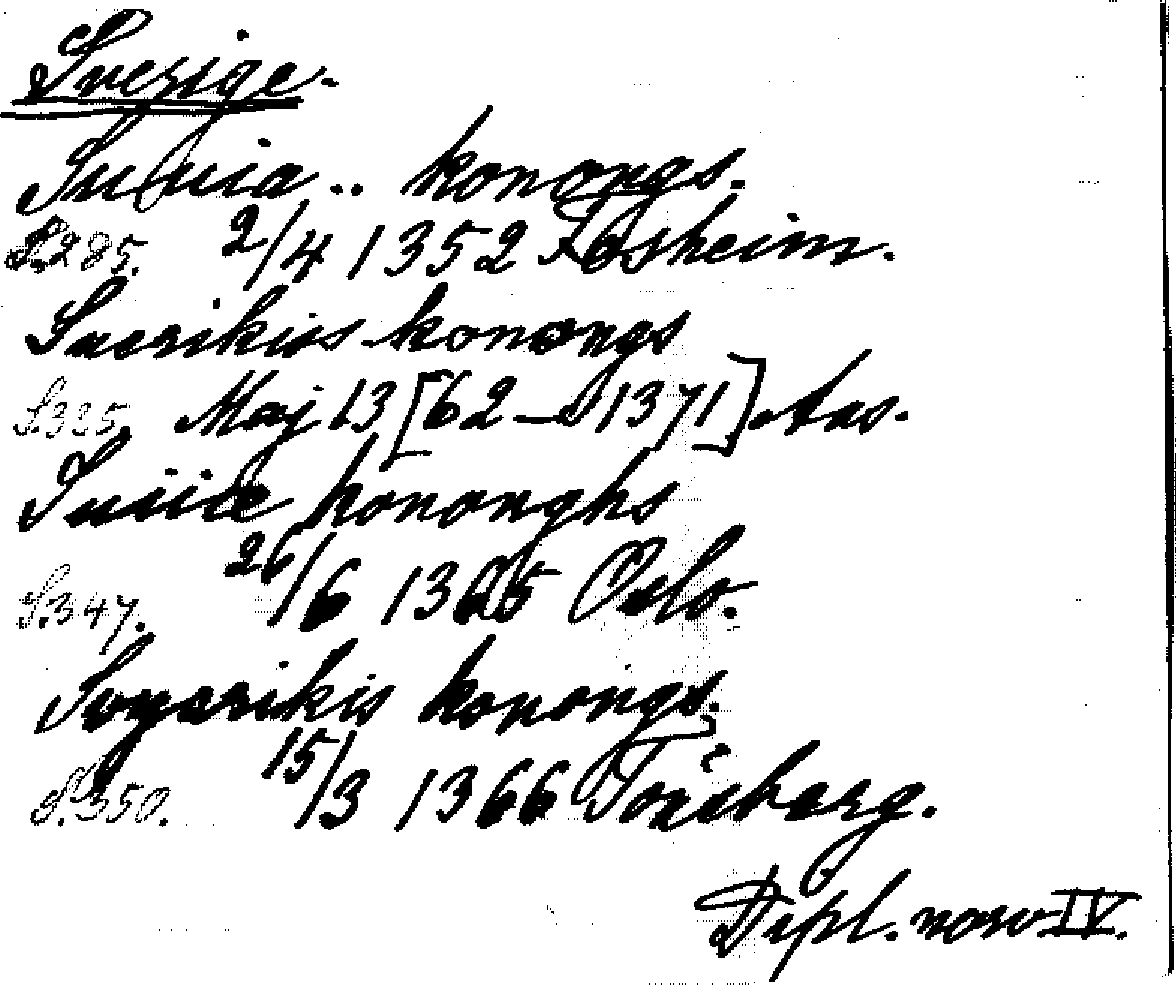 Sverige.
Suiuia .. konongs.
S.285. 2/4 1352 Fosheim.
Suerikiis konongs
S.335. Maj 13[62-1371] Aas.
Suiiæ kononghs
S.347. 26/6 1365 Oslo.
Svyærikis konongs.
S.350. 15/3 1366 Tönsberg.
Dipl. norv IV.